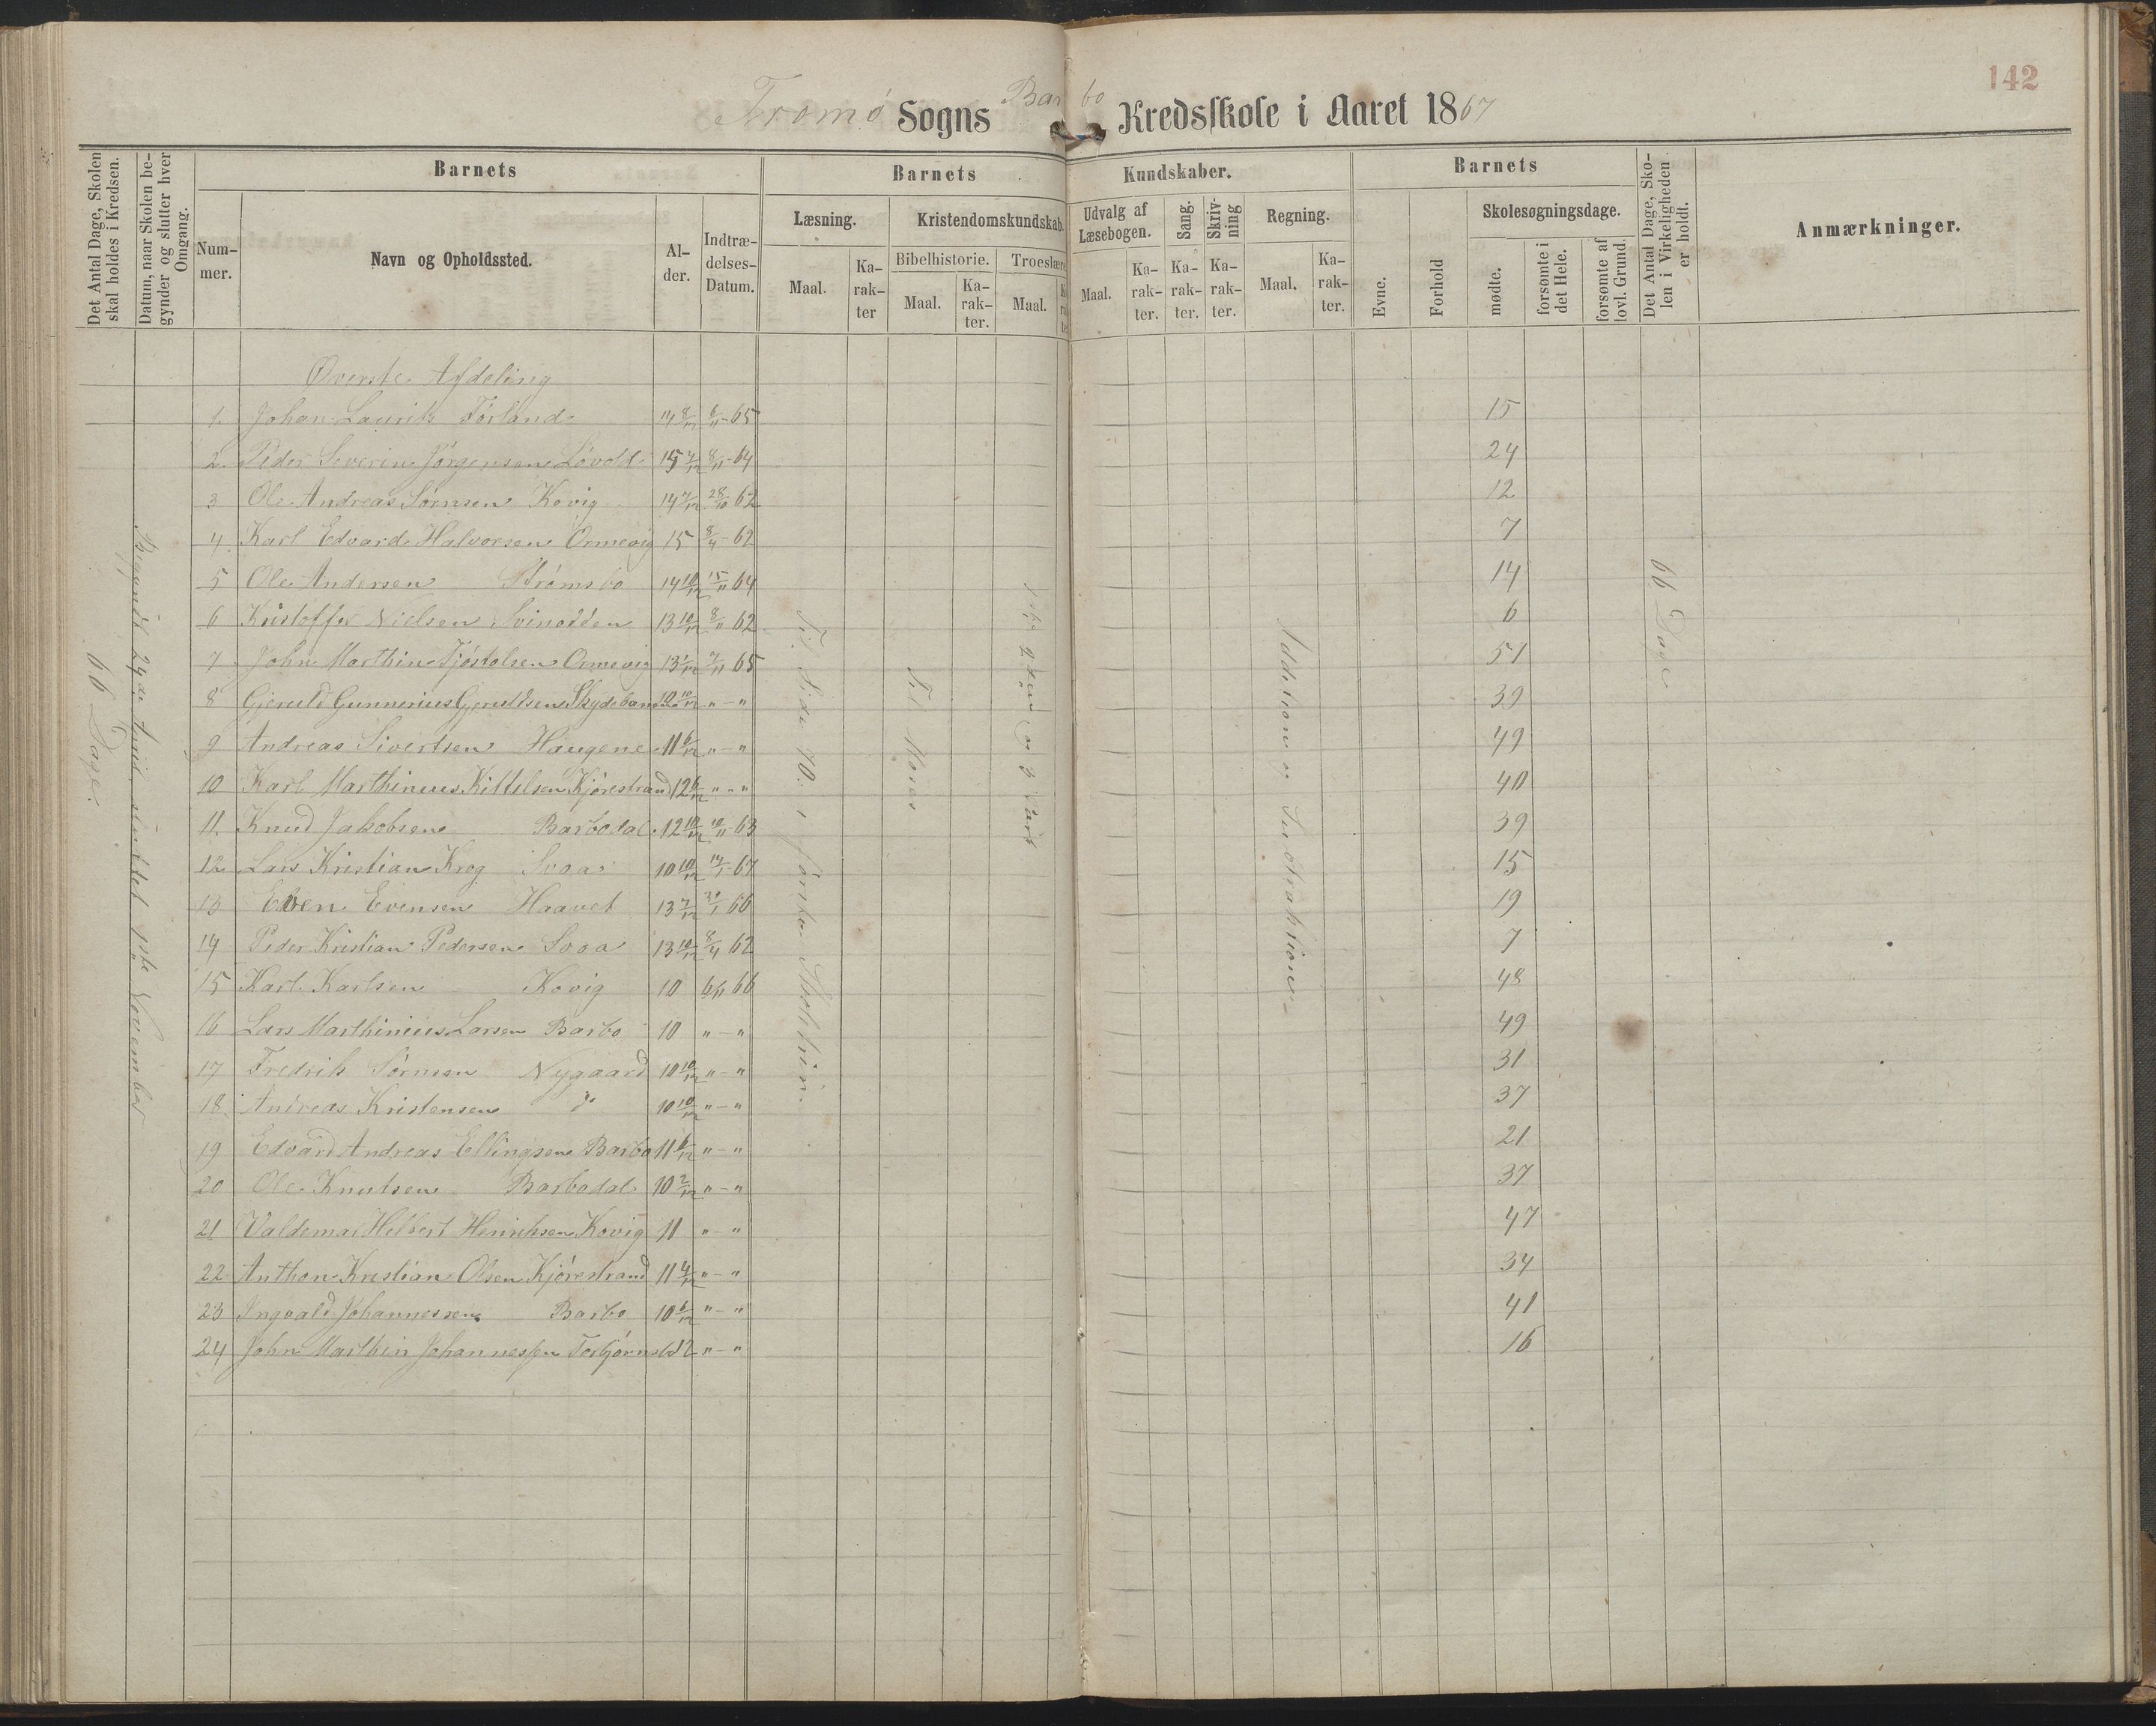 142
Tromø Sogns Barbo Kredsskole i Aaret 1867
Det Antal Dage, Skolen skal holdes i Kredsen.
Datum, naar Skolen begynder og slutter hver Omgang.
Barnets
Nummer.
Navn og Opholdssted.
Alder.
Indtrædelses-Datum.
Barnets Kundskaber.
Læsning.
Maal.
Karakter
Kristendomskundskab.
Bibelhistorie.
Maal.
Karakter.
Troeslære
Maal.
Udvalg af Læsebogen.
Maal.
Karakter.
Sang.
Karakter.
Skrivning
Karakter.
Regning.
Maal.
Karakter.
Barnets
Evne.
Forhold
Skolesøgningsdage.
mødte.
forsømte i det Hele.
forsømte af lovl. Grund.
Det Antal Dage, Skolen i Virkeligheden er holdt.
Anmærkninger.
66 Dage.
Begyndt 24de April sluttet 9de November
Øverste Afdeling
1. Johan Laurits Førland 14 8/12 6/11-65 15
2. Peder Severin Jørgensen Løvold 15 7/12 8/11-64 24
3 Ole Andreas Sørnsen Kovig 14 7/12 28/10 62 12
4. Karl Edvard Halvorsen Ormevig 15 8/4-62 7
5 Ole Andersen Strømsbo 14 10/12 15/11 64 14
6 Kristoffer Nielsen Svinodden 13 10/12 8/11 62 6
7 John Marthin Fjøstolsen Ormevig 13 1/12 7/11 65 51
8 Gjeruld Gunnerius Gjeruldsen Skydebanen 10 10/12 " - " 39
9 Andreas Sivertsen Haugene 11 6/12 " - " 49
10 Karl Marthinius Kittelsen Kjørestrand 12 6/12 " - " 40
11. Knud Jakobsen Barbodal 12 10/12 10/11-63 39
12 Lars Kristian Krog Svoa 10 10/12 14/1-67 15
13 Even Evensen Haavet 13 7/12 66 19
14 Peder Kristian Pedersen Svoa 13 10/12 8/4 62 7
15 Karl Karlsen Kovig 10 6/11 66 48
16 Lars Marthinius Larsen Barbo 10 " - " 49
17 Fredrik Sørnsen Nygaard 10 10/12 " - " 31
18 Andreas Kristensen do 10 10/12 " - " 37
19 Edvard Andreas Ellingsen Barbo 11 6/12 " - " 21
20 Ole Knutsen Barbodal 10 2/12 " - " 37
21 Valdemar Helbert Henriksen Kovig 11 " - " 47
22 Anthon Kristian Olsen Kjørestrand 11 4/12 " - " 34
23 Ingvald Johannessen Barbo 10 6/12 " - " 41
24 John Marthin Johannessen 12 " - " 16
Til Side 70 i første Skoletrin.
Til Moses
2den og 3 Part
Addition og Subtraktion
66 Dage